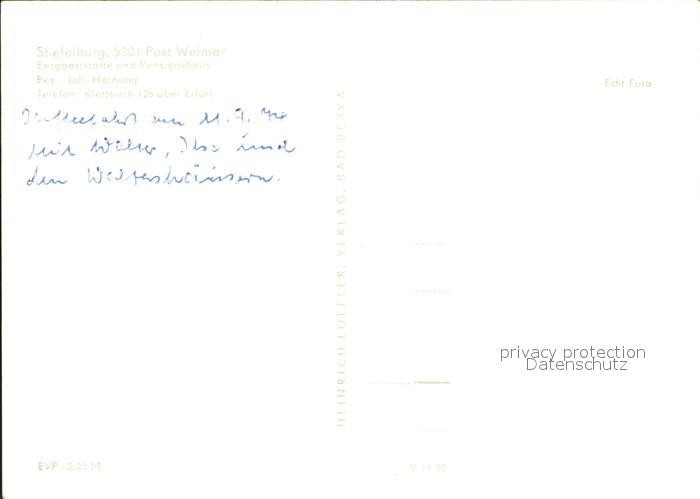 Stiefelburg, 5301 Post Weimar
Berggaststätte und Pensionshaus
Bes.: Joh. Hornung
Telefon: Klettbach 126 über Erfurt
Echt Foto
Kaffeefahrt am 11. 9. 74
mit Walter, Ilse und
den Waltershäusern.
HEINRICH LÖFFLER, VERLAG, BAD BERKA
privacy protection
Datenschutz
EVP: 0,25 M
V 11 50